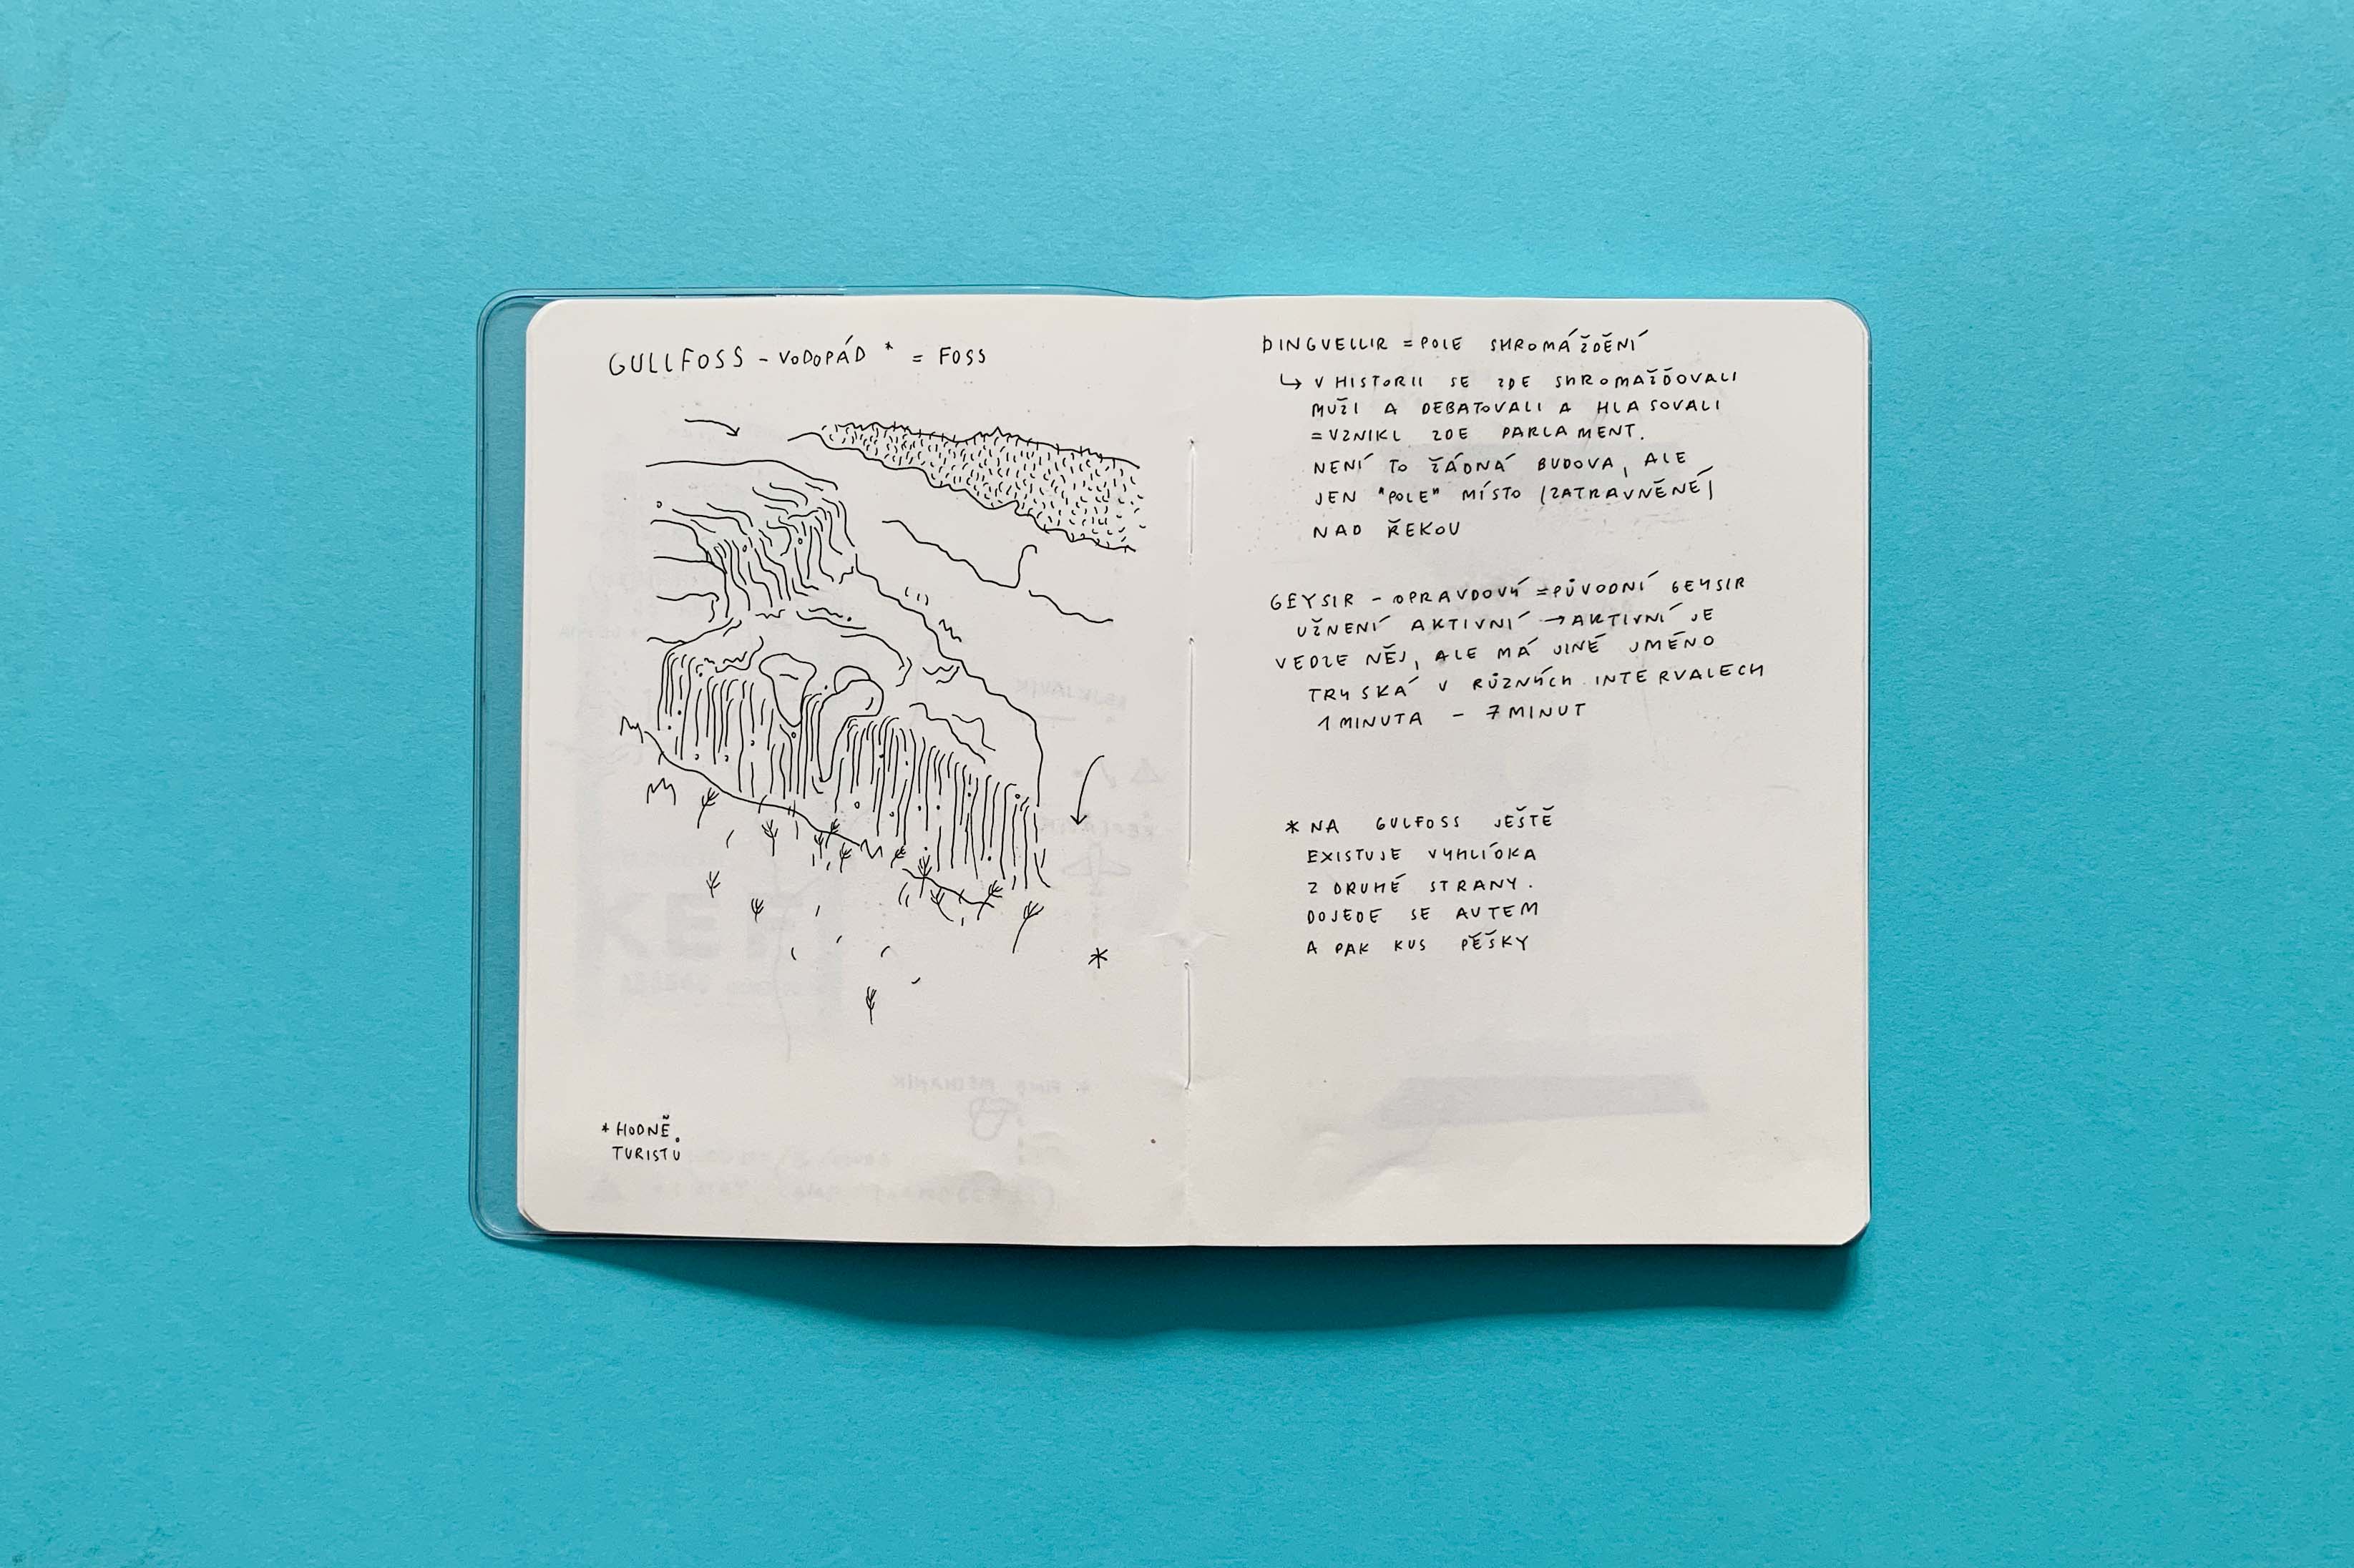 GULLFOSS – VODOPÁD * = FOSS
*
* HODNĚ
TURISTŮ
ÞINGVELLIR = POLE SHROMÁŽDĚNÍ
↳ V HISTORII SE ZDE SHROMAŽĎOVALI
MUŽI A DEBATOVALI A HLASOVALI
= VZNIKL ZDE PARLAMENT.
NENÍ TO ŽÁDNÁ BUDOVA, ALE
JEN "POLE" MÍSTO (ZATRAVNĚNÉ)
NAD ŘEKOU
GEYSIR – OPRAVDOVÝ = PŮVODNÍ GEYSIR
UŽNENÍ AKTIVNÍ → AKTIVNÍ JE
VEDLE NĚJ, ALE MÁ JINÉ JMÉNO
TRYSKÁ V RŮZNÝCH INTERVALECH
1 MINUTA – 7 MINUT
* NA GULFOSS JEŠTĚ
EXISTUJE VYHLÍDKA
Z DRUHÉ STRANY.
DOJEDE SE AUTEM
A PAK KUS PĚŠKY